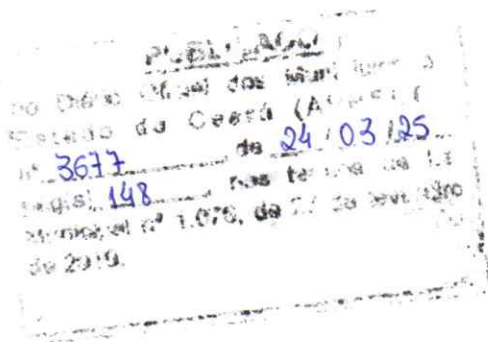 PUBLICADO
no Diário Oficial dos Municípios
Estado do Ceará
nº 3677 de 24/03/25
pag(s) 148 nos termos da Lei
Municipal nº 1.076, de de fevereiro
de 2019.